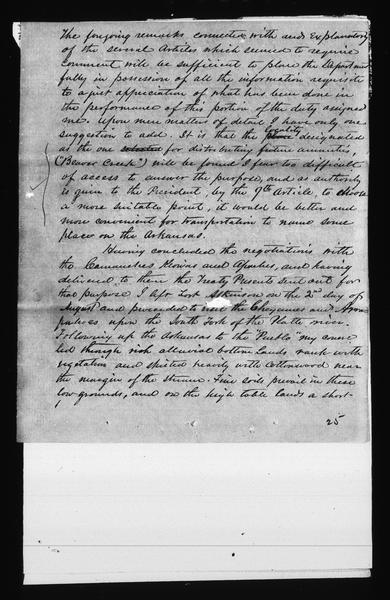 The foregoing remarks connected with and Explanatory
of the several Articles which seemed to require
comment will be sufficient to place the Department
fully in possession of all the information requisite
to a just appreciation of what has been done in
the performance of this portion of the duty assigned
me. Upon mere matters of detail I have only one
suggestion to add. It is that the place locality designated
as the one selected for distributing future annuities
("Beaver Creek") will be found I fear too difficult
of access to answer the purpose, and as authority
is given to the President, by the 9th article, to choose
a more suitable point, it would be better and
more convenient for transportation to name some
place on the Arkansas.
Having concluded the negotiations with
the Camanches, Kiowas and Apaches, and having
delivered to them the Treaty Presents sent out for
that purpose I left Fort Atkinson on the 2d day of
August and proceeded to visit the Cheyennes and Arapahoes
upon the South Fork of the Platte river.
Following up the Arkansas to the "Pueblo" my course
led through rich alluvial bottom lands rank with
vegetation and skirted heavily with cottonwood near
the margin of the stream. Fine soils prevail in these
low grounds, and on the high table lands a short-
25